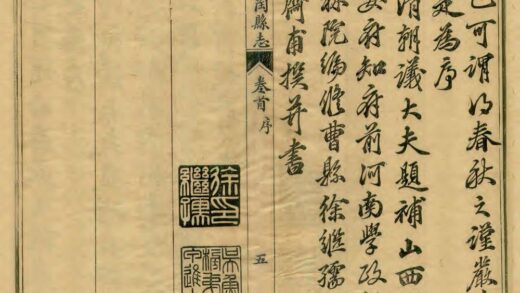 已可謂得春秋之謹嚴
是為序
清朝議大夫題補山西
安府知府前河南學政
林院編修曹縣徐繼孺
齊甫撰并書
縣志
卷首 序
五
徐繼孺印